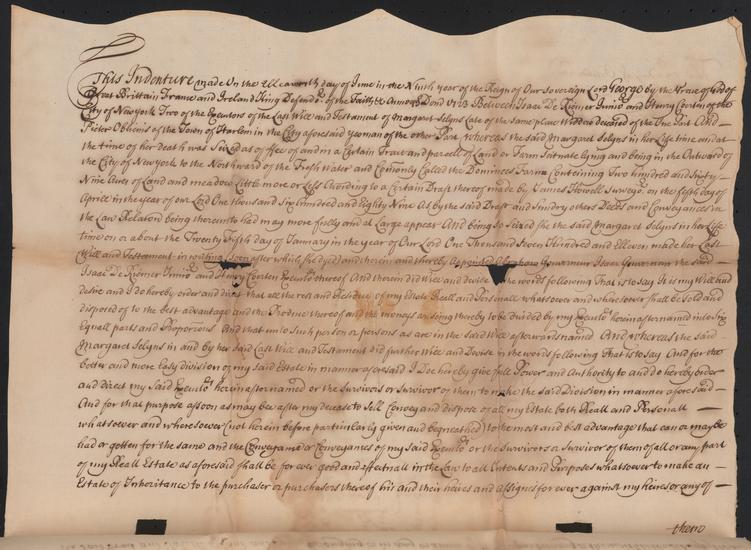 This Indenture made On the Elleaventh day of June in the Ninth year of the Reign of Our Sovereign Lord George by the Grace of God of
Great Brittain France and Ireland King Defendr. of the Faith &c Annoq Dom 1723 Between Isaac De Riemer Junior and Henry Coerten of the
City of New York Two of the Executors of the Last Will and Testament of Margaret Selyns Late of the same place Widdow deceased of the One Part And
Pieter Oblienis of the Town of Harlem in the City aforesaid yeoman of the other Part, whereas the said Margaret Selyns in her Life time and at
the time of her death was Seized as of fee of and in a Certain Tract and parcell of Land or Farm Scituate lying and being in the Outward of
the City of New York to the Northward of the Fresh Water and Comonly Called the Dominees Farme Containing Two hundred and sixty
Nine Acres of Land and meadow Little more or Less According to a Certain Draft thereof made by James Howell Surveyr. on the fifth day of
Aprill in the year of our Lord One thousand Six hundred and Eighty Nine As by the said Draft and Sundry others Deeds and Conveyances in
the Law Relation being thereunto had may more fully and at Large appear And being so Seized she the said Margaret Selyns in her Life
time on or about the Twenty Fifth day of January in the year of Our Lord One Thousand Seven Hundred and Elleven made her Last
Will and Testament in writing Soon after which she dyed and therein and thereby Appointed Abraham Gouverneur Isaac Gouverneur the said
Isaac De Riemer Junior and Henry Coerten Executrs. thereof And therein did Will and devise the words following That is to say It is my Will and
desire and I do hereby order and direct that all the rest and Residue of my Estate Reall and Personall whatsoever and wheresoever shall be Sold and
disposed of to the best advantage and the Produce thereof and the moneys arising thereby to be divided by my Executrs. herein afternamed into Six
Equall parts and Proporcions And that unto such person or persons as are in the said Will afterwards named And whereas the said
Margaret Selyns in and by her said Last Will and Testament did further Will and Devise in the words following That is to Say And for the
better and more Easy division of my said Estate in manner aforesaid I Doe hereby give full Power and Authority to and do hereby order
and direct my Said Executrs. herein afternamed or the Survivors or Survivor of them to make the said Division in manner aforesaid
And for that purpose assoon as may be after my decease to Sell Convey and dispose of all my Estate both Reall and Personall
whatsoever and wheresoever (not herein before particularly given and bequeathed) to the most and best advantage that can or may be
had or gotten for the same and the Conveyance or Conveyances of my said Executrs. or the Survivors or Survivor of them of all or any part
of my Reall Estate as aforesaid shall be for ever good and effectuall in the Law to all Intents and Purposes whatsoever to make an
Estate of Inheritance to the purchaser or purchasors thereof his and their heires and assignes for ever against my heires or any of
them